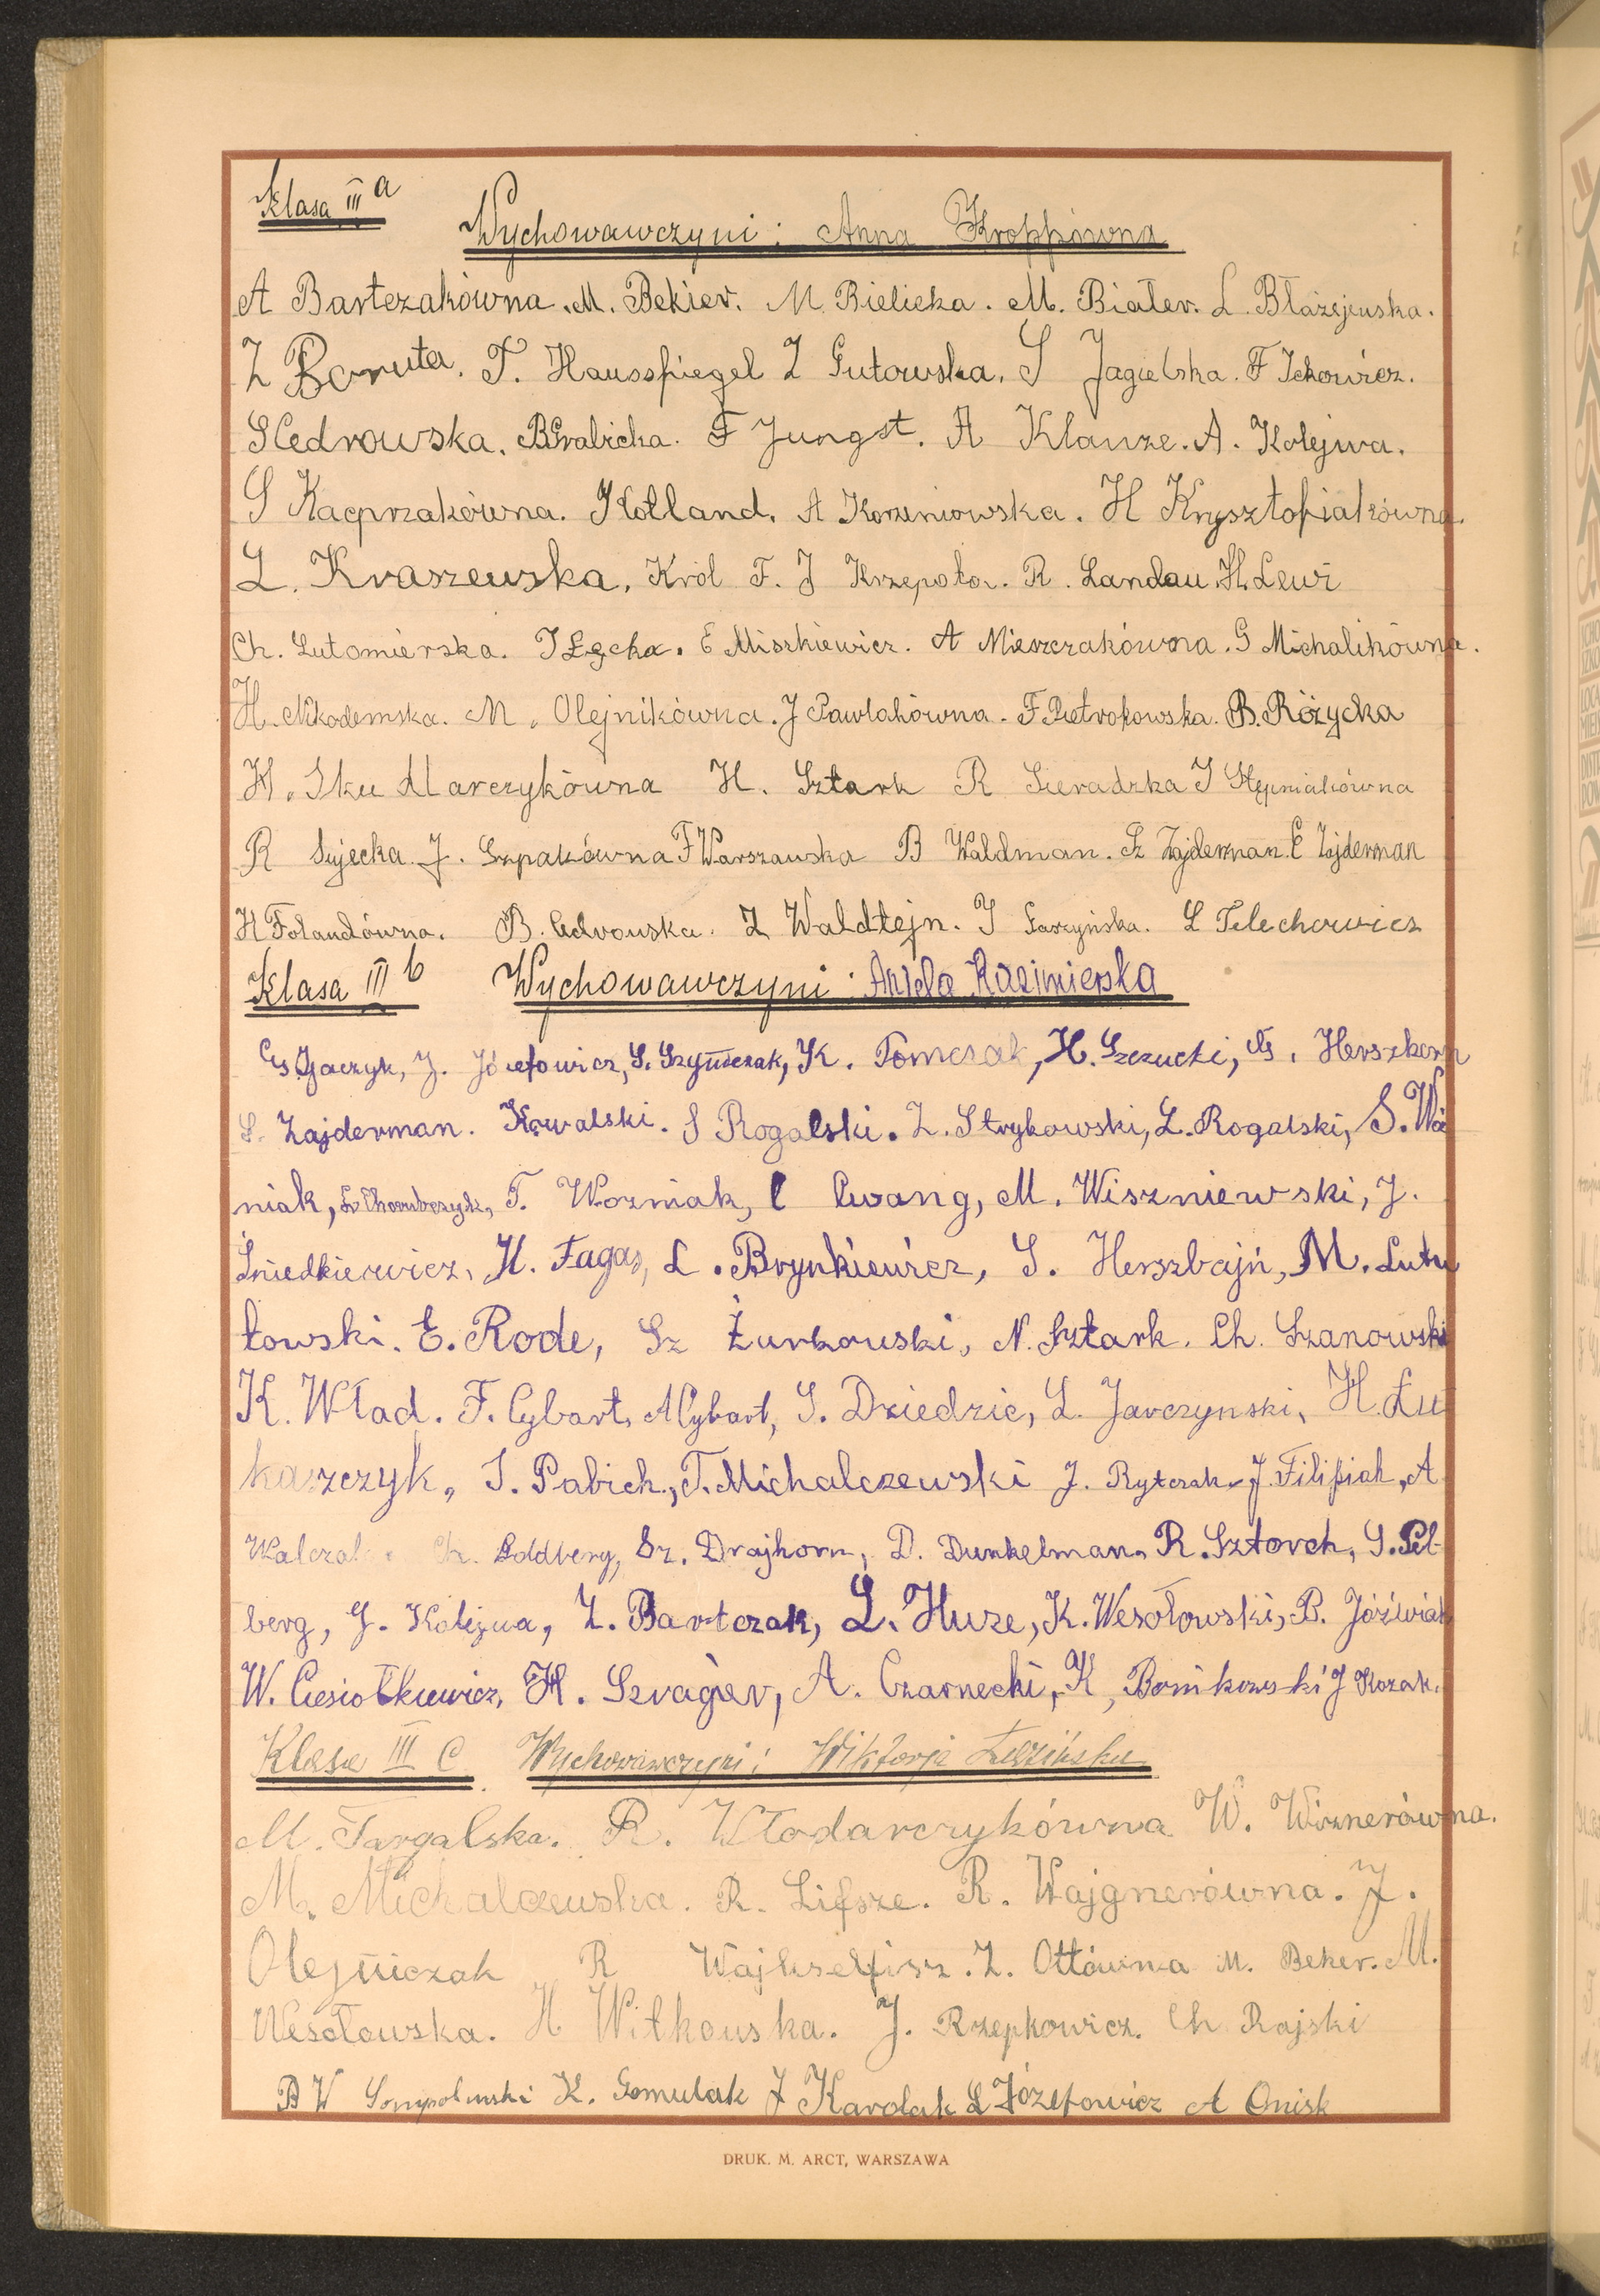 Klasa III a
Wychowawczyni: Anna Kroppówna
A Bartczakówna. M. Bekier. M Bielicka. M. Biater. L. Błażejewska.
Z Boruta. T. Hausspiegel Z Gutowska. S Jagielska. F Ickowicz.
S Cedrowska. B Gralicka. F Jungst. A Klauze. A. Kolejwa.
S Kacprzakówna. Kolland. A Korzeniowska. H Krysztofiakówna.
L. Kraszewska. Król F. J Krzepota. R. Landau H. Lewi
Ch. Lutomierska. J Łęcka. E Miszkiewicz. A Mieszczakówna. G Michalikówna.
H. Nikodemska. M. Olejnikówna. J Pawlakówna. F Pietrokowska. B. Różycka
H. Skumarczykówna H. Sztark R Sieradzka J Stępniakówna
R Sujecka J. Szpakówna F Warszawska B Waldman. Sz Zajderman. E Zajderman
H Folandówna. B. Z Waldtejn. J Garzyńska. L Telechowicz
Klasa III b Wychowawczyni: Aniela Kazimierska
J. Józefowicz, S. Szymczak, K. Tomczak, H. Szczucki, Herszkorn
S. Zajderman. Kowalski. S Rogalski. Z. Strykowski, L. Rogalski, S. Woź
niak, T. Wozniak, C Cwang, M. Wiszniewski, J.
Śniedkiewicz, H. Fagas, L. Brynkiewicz, S. Herszbajń, M. Luto
towski. E. Rode, Sz Żurkowski, N. Sztark. Ch. Szanowski
K. Wład. F. Cybart, A Cybart, S. Dziedzic, L. Jarczynski, H. Łu
kaszczyk, S. Pabich, T. Michalczewski J. Rytczak, J. Filipiak, A
Walczak. Ch. Goldberg, Sz. Drajhorn, D. Dunkelman, R. Sztorch, S. Gel-
berg, J. Kolejwa, Z. Bartczak, L. Huze, K. Wesołowski, B. Jóźwiak
W. Ciesiołkiewicz, H. Szrajer, A. Czarnecki, K, Bonikowski J Kozak.
Klasa III C Wychowawczyni: Wiktorja
M. Targalska. R. Włodarczykówna W. Wiznerówna.
M. Michalczewska. R. Lifsze. R. Wajgnerówna. J.
Olejniczak R Wajhselfisz. Z. Ottówna M. Beker. M.
Wesołowska. H Witkowska. J. Rzepkowicz. Ch Rajski
B W Sompolinski K. Gomulak J Karolak L Józefowicz A Onisk
DRUK. M. ARCT, WARSZAWA